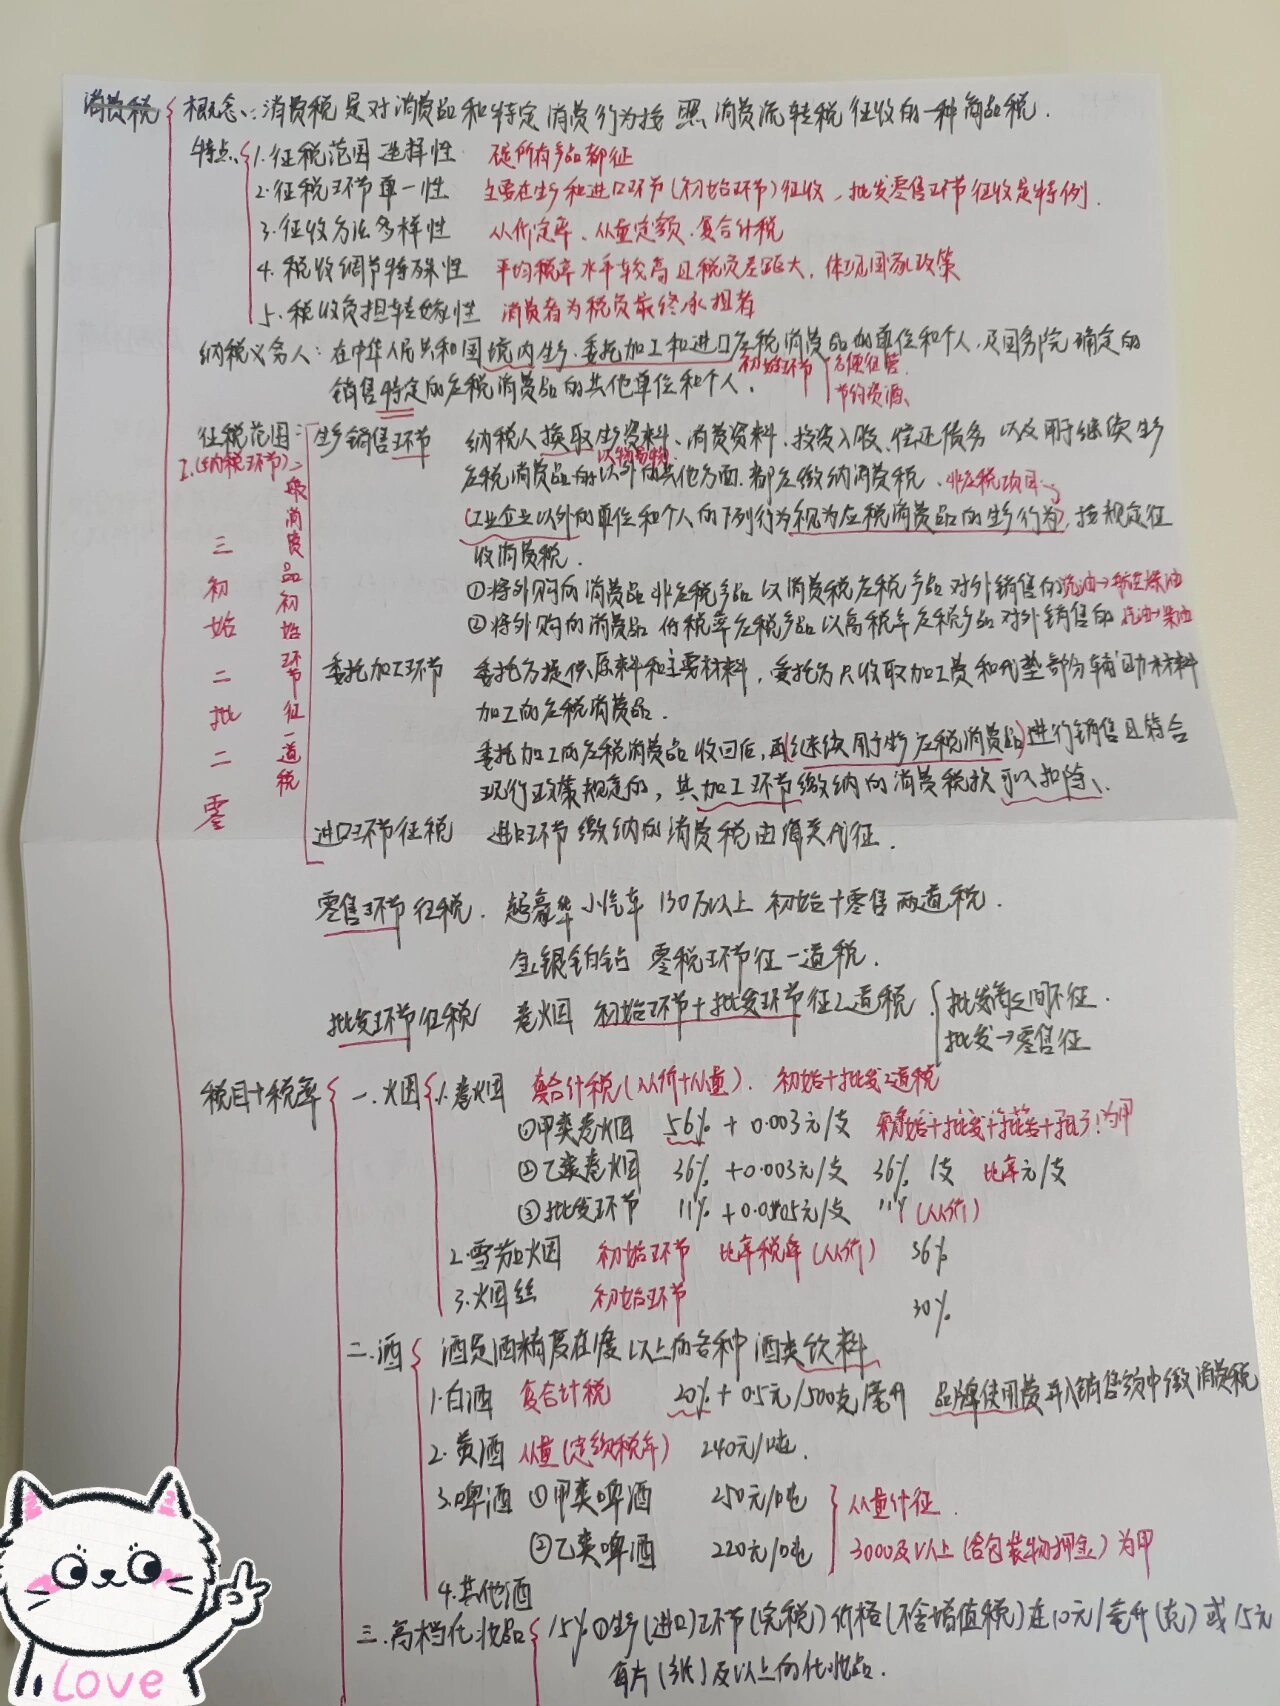 消费税 概念:消费税是对消费品和特定消费行为按照消费流转税征收的一种商品税.
特点 1.征税范围选择性 不是所有产品都征
2.征税环节单一性 主要在生产和进口环节(初始环节)征收,批发零售环节征收是特例.
3.征收方法多样性 从价定率、从量定额、复合计税
4.税收调节特殊性 平均税率水平较高且税负差距大,体现国家政策
5.税收负担转嫁性 消费者为税负最终承担者
纳税义务人:在中华人民共和国境内生产、委托加工和进口应税消费品的单位和个人,及国务院确定的
初始环节 方便征管
销售特定的应税消费品的其他单位和个人. 节约资源、
征税范围: 生产销售环节 纳税人换取生产资料、消费资料、投资入股、偿还债务以及用于继续生产
(纳税环节) 以物易物
应税消费品的以外的其他方面.都应缴纳消费税. 非应税项目
(工业企业以外的单位和个人的下列行为视为应税消费品的生产行为),按规定征
收消费税.
①将外购的消费品非应税产品以消费税应税产品对外销售的 汽油→航空煤油
②将外购的消费品低税率应税产品以高税率应税产品对外销售的 汽油→柴油
一般消费品初始环节征一道税
三初始二批二零
委托加工环节 委托方提供原料和主要材料,受托方只收取加工费和代垫部分辅助材料
加工的应税消费品.
委托加工的应税消费品收回后,再(继续用于生产应税消费品)进行销售且符合
现行政策规定的,其加工环节缴纳的消费税款可以扣除、
进口环节征税 进口环节缴纳的消费税由海关代征.
零售环节征税. 超豪华小汽车 130万以上 初始+零售两道税.
金银铂钻 零税环节征一道税.
批发环节征税 卷烟 初始环节+批发环节征2道税 批发商之间不征.
批发→零售征
税目+税率 一.烟 1.卷烟 复合计税(从价+从量). 初始+批发2道税
①甲类卷烟 56% + 0.003元/支
②乙类卷烟 36% +0.003元/支 36% /支 比率元/支
③批发环节 11% +0.005元/支 11% (从价)
2.雪茄烟 初始环节 比率税率(从价) 36%
3.烟丝 初始环节 30%
二.酒 酒是酒精度在1度以上的各种酒类饮料
1.白酒 复合计税 20% + 0.5元/500克/毫升 品牌使用费并入销售额中缴消费税
2.黄酒 从量(定额税率) 240元/吨.
3.啤酒 ①甲类啤酒 250元/吨 从量计征.
②乙类啤酒 220元/吨 3000及以上(含包装物押金)为甲
4.其他酒
三.高档化妆品 15% ①生产(进口)环节(完税)价格(不含增值税)在10元/毫升(克)或15元
每片(张)及以上的化妆品.
LOVE